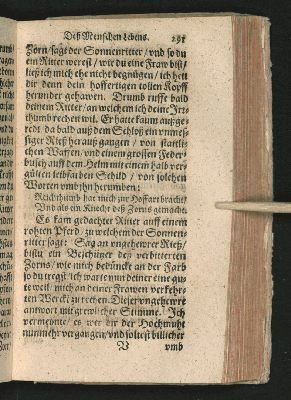 Deß Menschen Lebens. 291
Zorn / sagt der Sonnenritter / vnd so du
ein Ritter werest / wie du eine Fraw bist /
ließ ich mich ehe nicht begnügen / ich hett
dir denn dein hoffertigen tollen Kopff
herunder gehawen. Drumb ruffe bald
deinem Ritter / an welchem ich deine Irr-
thumb rechen wil. Er hatte kaum außge-
redt da bald auß dem Schloß ein vnmeß-
siger Rieß herauß gangen / von stattli-
chen Waffen / vnd einem grossen Feder-
busch auff dem Helm mit einem halb ver-
gülten leibfarben Schild / von solchen
Worten vmb jhn herumben:
Reichthumb hat mich zur Hoffart bracht /
Vnd als ein Knecht deß Zorns gemacht.
Es kam gedachter Ritter auff einem
rohten Pferd / zu welchem der Sonnen-
ritter sagt: Sag an vngehewrer Rieß /
bistu ein Beschützer deß verbitterten
Zorns / wie mich bedünckt an der Farb
so du tregst: ich warte nun deiner eine gu-
te weil / mich an deiner Frawen verkehr-
ten Werck zu rechen. Dieser vngehewre
antwort mit grewlicher Stimme. Ich
vermeynte / es wer dir der Hochmuht
nunmehr vergangen / vnd soltest billicher
V vmb